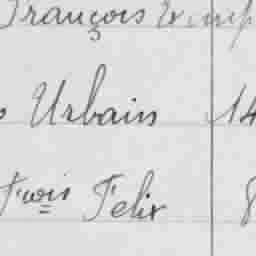 François
Urbain 14
Fçois Felix 8